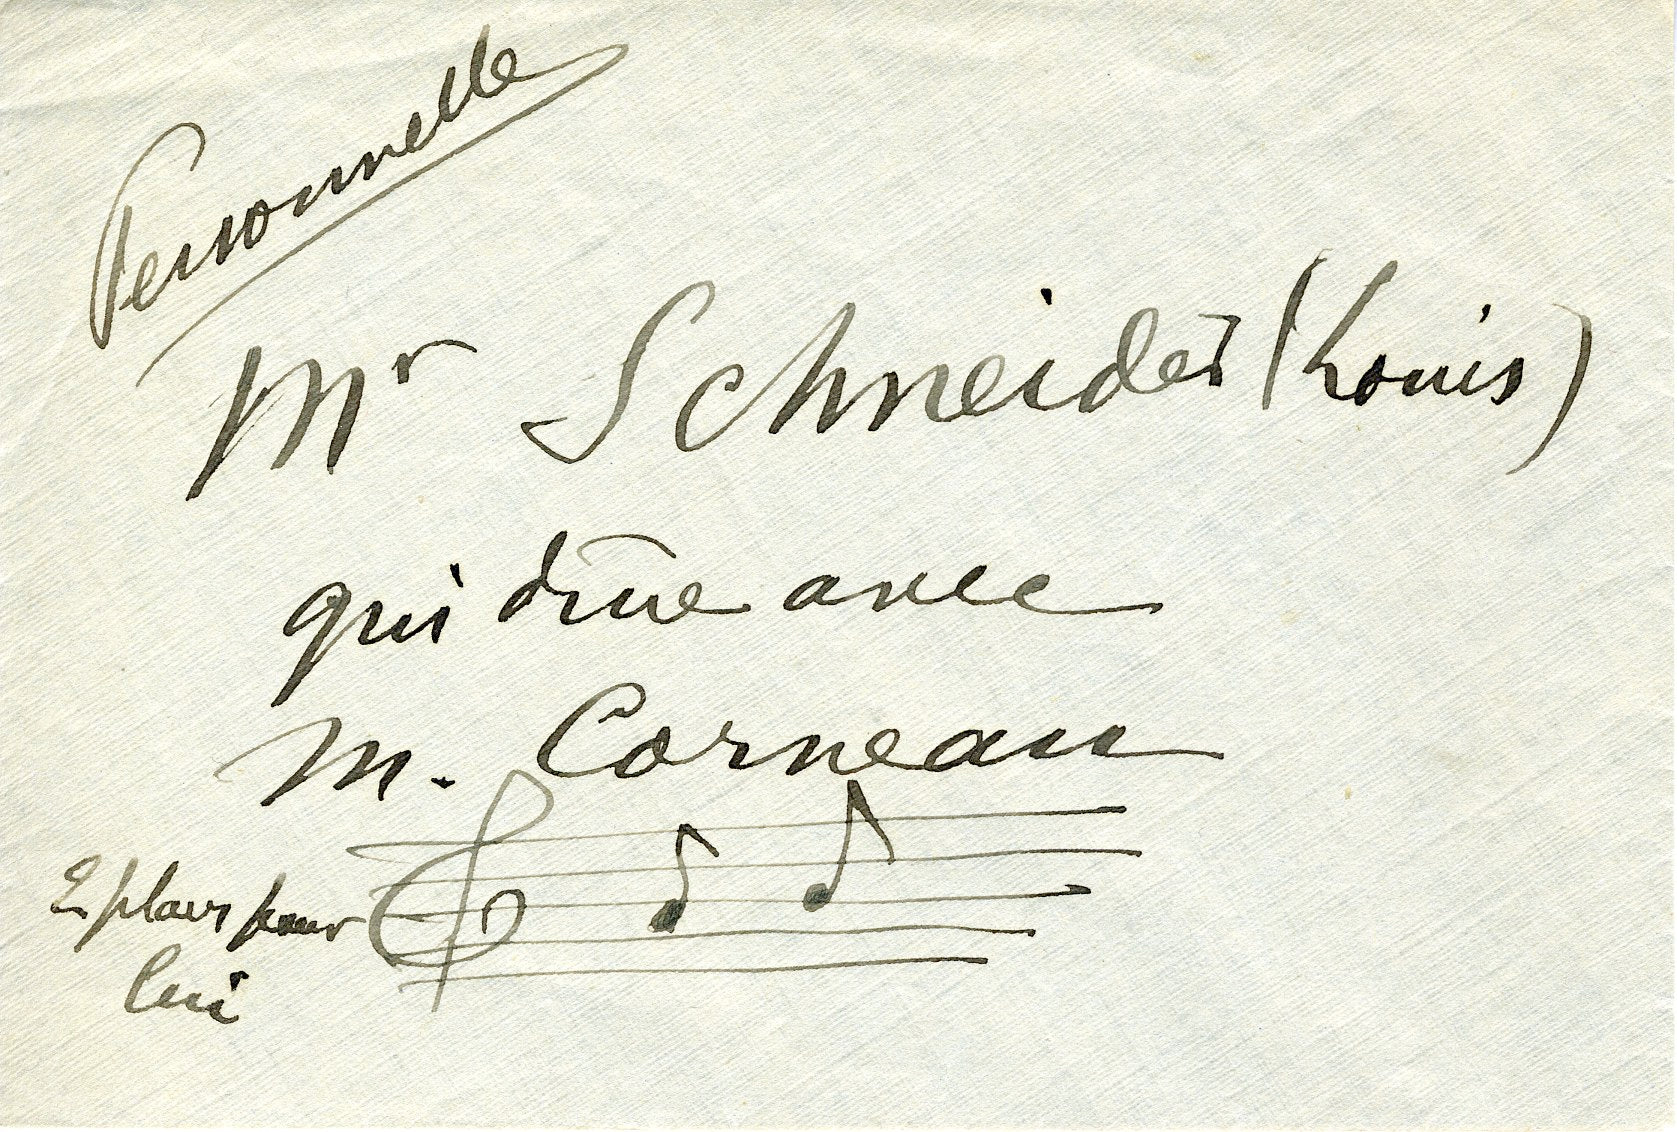 Personnelle
Mr Schneider (Louis)
qui dîne avec
M. Corneau
2 places pour
lui